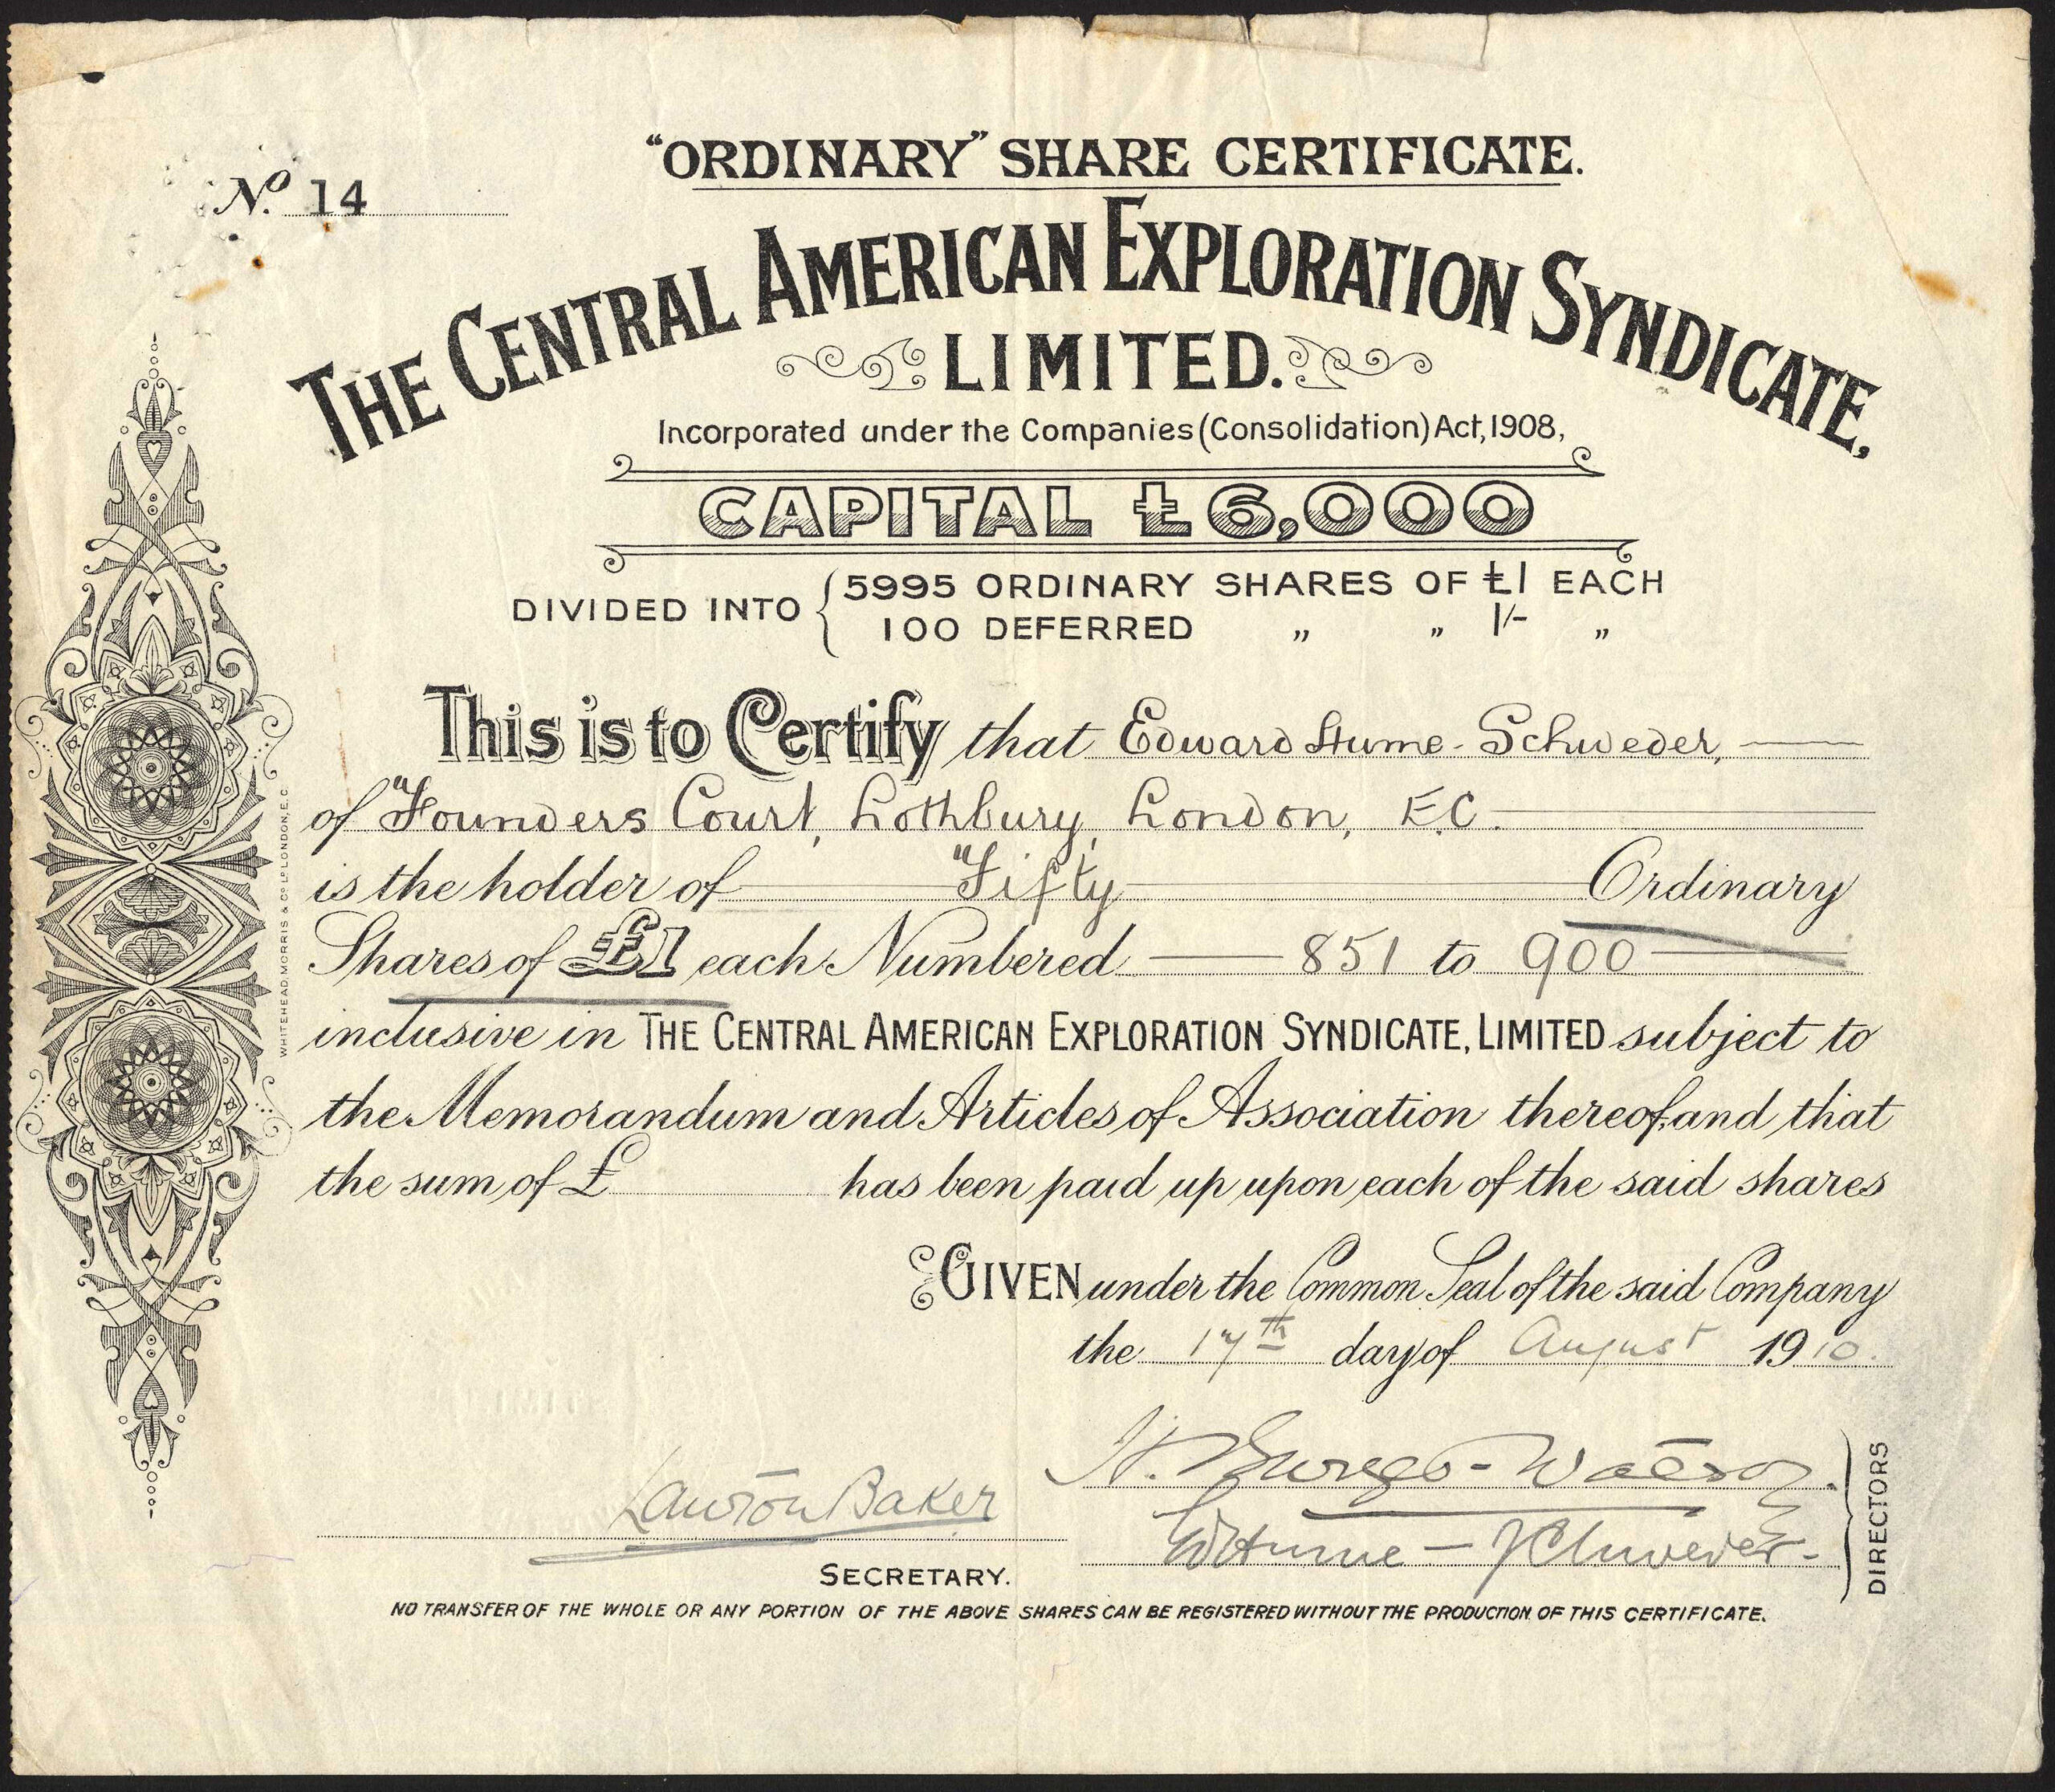 "ORDINARY" SHARE CERTIFICATE.
No. 14
THE CENTRAL AMERICAN EXPLORATION SYNDICATE,
LIMITED.
Incorporated under the Companies (Consolidation) Act, 1908,
CAPITAL £6,000
DIVIDED INTO { 5995 ORDINARY SHARES OF £1 EACH
100 DEFERRED „ „ 1/- „
This is to Certify that Edward Hume-Schweder,
of Founders Court, Lothbury, London, E.C.
is the holder of Fifty Ordinary
Shares of £1 each Numbered 851 to 900
inclusive in THE CENTRAL AMERICAN EXPLORATION SYNDICATE, LIMITED subject to
the Memorandum and Articles of Association thereof, and that
the sum of £ has been paid up upon each of the said shares
GIVEN under the Common Seal of the said Company
the 17th day of August 1910.
Lawton Baker
SECRETARY.
Watson
Ed Hume-Schweder
DIRECTORS
NO TRANSFER OF THE WHOLE OR ANY PORTION OF THE ABOVE SHARES CAN BE REGISTERED WITHOUT THE PRODUCTION OF THIS CERTIFICATE.
WHITEHEAD, MORRIS & CO. LD. LONDON, E.C.